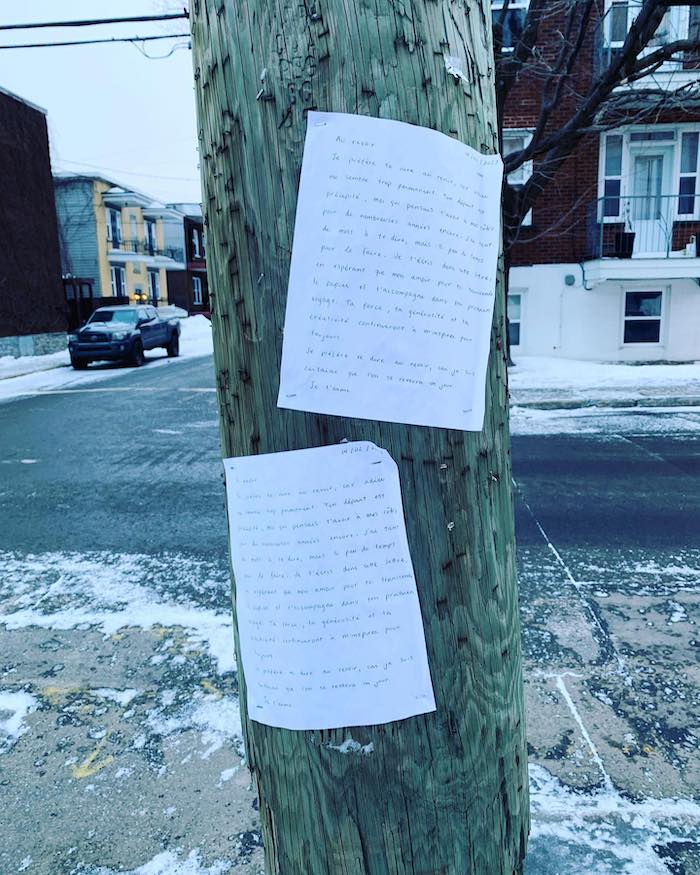 Au revoir
Je préfère te dire au revoir, car adieu
me semble trop permanent. Ton départ est
précipité, Moi qui pensais t'avoir à mes côtés
pour de nombreuses années encore. J'ai tant
de mots à te dire, mais si peu de temps
pour le faire. Je t'écris dans cette lettre
en espérant que mon amour pour toi transcende
le papier et t'accompagne dans ton prochain
voyage. Ta force, ta générosité et ta
créativité continueront à m'inspirer pour
toujours.
Je préfère te dire au revoir, car je suis
certaine que l'on se reverra un jour.
Je t'aime
14/02/2
revoir
préfère te dire au revoir, car adieu
semble trop permanent. Ton départ est
Moi qui pensais t'avoir à mes côtés
de nombreuses années encore. J'ai tant
mots à te dire, mais si peu de temps
le faire. Je t'écris dans cette lettre
espérant que mon amour pour toi transcende
papier et t'accompagne dans ton prochain
Ta force, ta générosité et ta
créativité continueront à m'inspirer pour
préfère te dire au revoir, car je suis
que l'on se reverra un jour.
t'aime